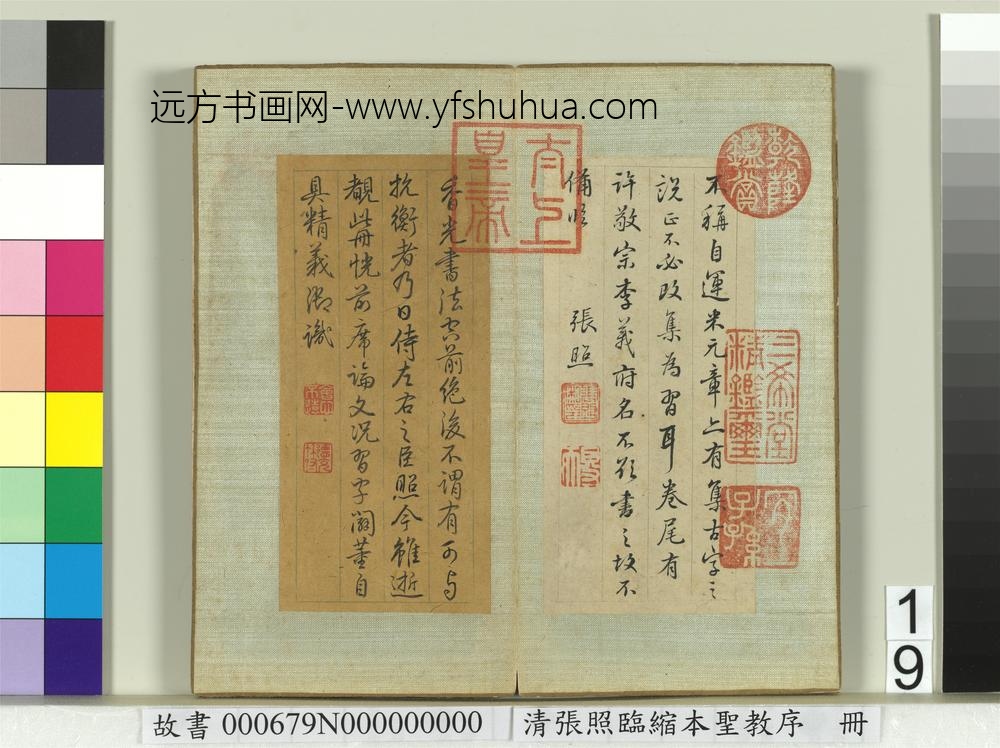 远方书画网-www.yfshuhua.com
乾隆鑑賞
不稱自運米元章亦有集古字之
說正不必改集為習耳卷尾有
許敬宗李義府名不欲書之故不
備臨
張照
三希堂
精鑑璽
宜子孫
太上皇帝
香光書法空前絕後不謂有可與
抗衡者乃日侍左右之臣照今雖逝
覩此冊恍前席論文況習字闢董自
具精義御識
19
故書 000679N000000000 清張照臨縮本聖教序 冊